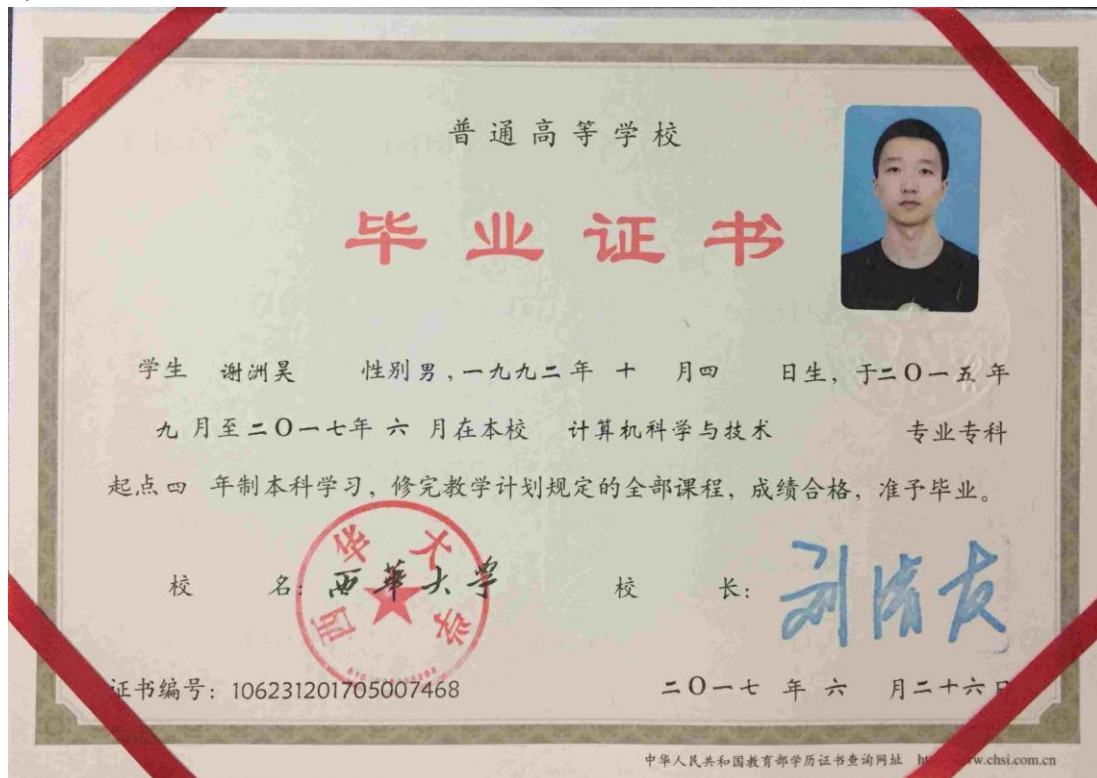 普通高等学校
毕业证书
学生 谢洲昊 性别男，一九九二年 十 月四 日生，于二〇一五年
九 月至二〇一七年 六 月在本校 计算机科学与技术 专业专科
起点四 年制本科学习，修完教学计划规定的全部课程，成绩合格，准予毕业。
校 名：西華大学 校 长：刘清友
西华大学
证书编号：106231201705007468 二〇一七 年 六 月二十六日
中华人民共和国教育部学历证书查询网址 www.chsi.com.cn